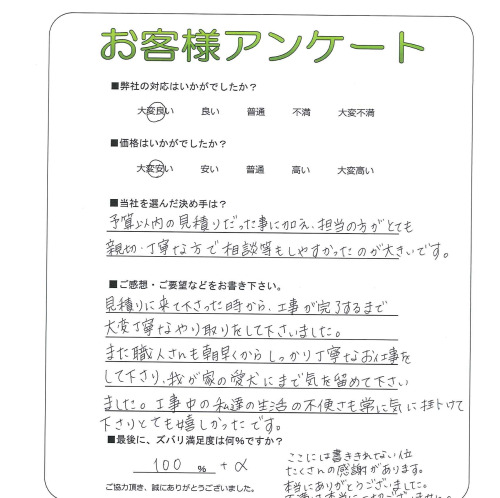 お客様アンケート
■弊社の対応はいかがでしたか？
大変良い 良い 普通 不満 大変不満
■価格はいかがでしたか？
大変安い 安い 普通 高い 大変高い
■当社を選んだ決め手は？
予算以内の見積りだった事に加え、担当の方がとても
親切・丁寧な方で相談等もしやすかったのが大きいです。
■ご感想・ご要望などをお書き下さい。
見積りに来て下さった時から、工事が完了するまで
大変丁寧なやり取りをして下さいました。
また職人さんも朝早くからしっかり丁寧なお仕事を
して下さり、我が家の愛犬にまで気を留めて下さい
ました。工事中の私達の生活の不便さも常に気に掛けて
下さりとても嬉しかったです。
■最後に、ズバリ満足度は何%ですか？
100 % + α
ご協力頂き、誠にありがとうございました。
ここには書ききれない位
たくさんの感謝があります。
本当にありがとうございました。